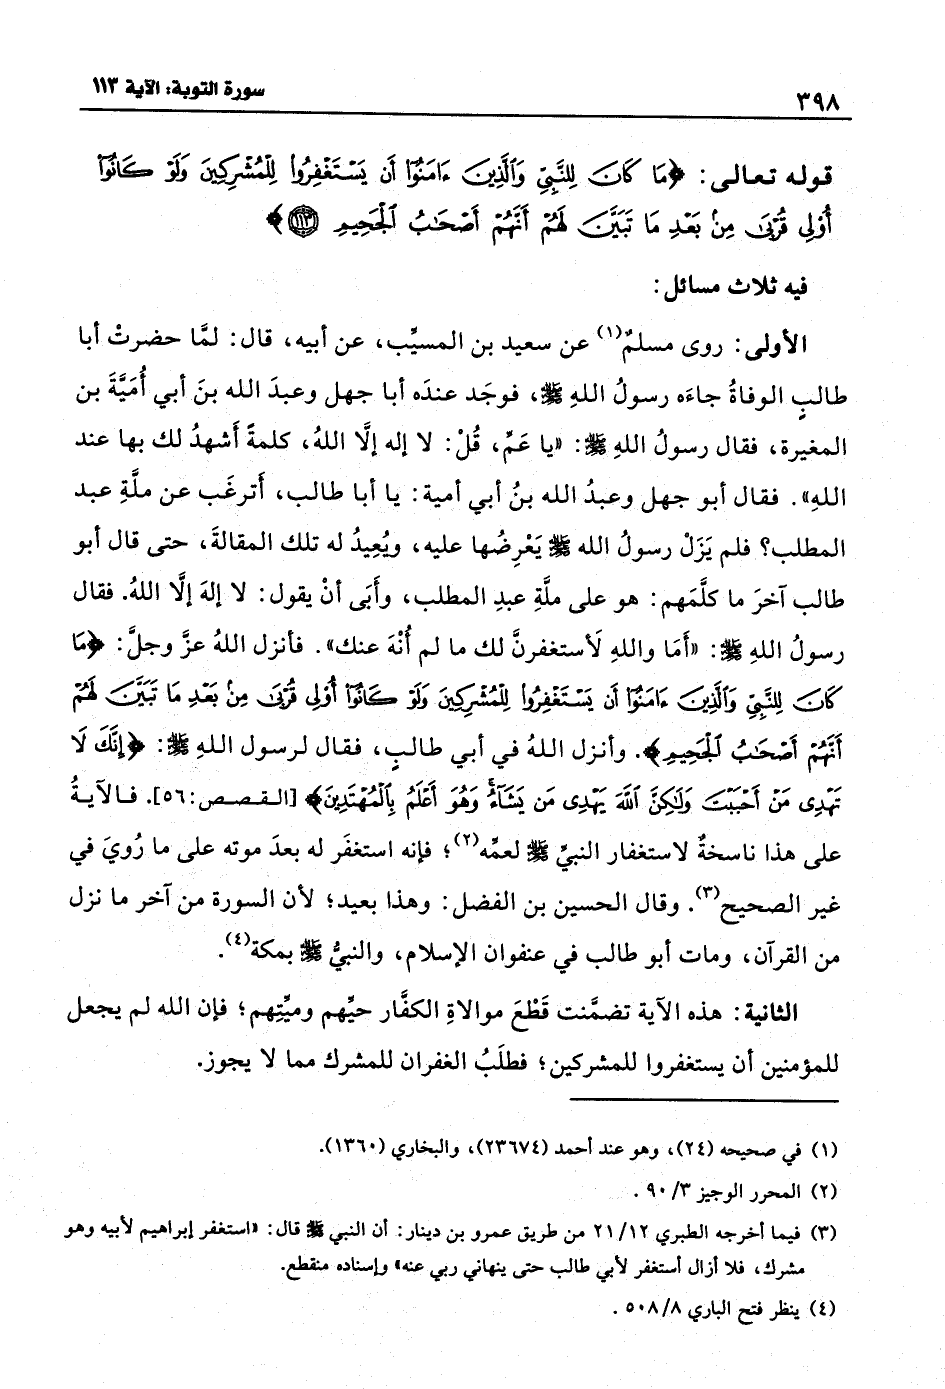 سورة التوبة: الآية ١١٣
٣٩٨
قوله تعالى: ﴿مَا كَانَ لِلنَّبِيِّ وَٱلَّذِينَ ءَامَنُوٓا۟ أَن يَسْتَغْفِرُوا۟ لِلْمُشْرِكِينَ وَلَوْ كَانُوٓا۟
أُو۟لِي قُرْبَىٰ مِنۢ بَعْدِ مَا تَبَيَّنَ لَهُمْ أَنَّهُمْ أَصْحَٰبُ ٱلْجَحِيمِ ١١٣﴾
فيه ثلاث مسائل:
الأولى: روى مسلمٌ(١) عن سعيد بن المسيِّب، عن أبيه، قال: لمَّا حضرتْ أبا
طالبٍ الوفاةُ جاءَه رسولُ اللهِ ﷺ، فوجَد عندَه أبا جهل وعبدَ الله بنَ أبي أُمَيَّةَ بن
المغيرة، فقال رسولُ اللهِ ﷺ: «يا عَمِّ، قُلْ: لا إله إلَّا اللهُ، كلمةً أَشهدُ لك بها عند
اللهِ». فقال أبو جهل وعبدُ الله بنُ أبي أمية: يا أبا طالب، أَترغَب عن ملَّةِ عبد
المطلب؟ فلم يَزَلْ رسولُ الله ﷺ يَعْرِضُها عليه، ويُعِيدُ له تلك المقالةَ، حتى قال أبو
طالب آخرَ ما كلَّمَهم: هو على ملَّةِ عبدِ المطلب، وأَبَى أنْ يقول: لا إلهَ إلَّا اللهُ. فقال
رسولُ اللهِ ﷺ: «أَمَا واللهِ لَأستغفرنَّ لك ما لم أُنْهَ عنك». فأنزل اللهُ عزَّ وجلَّ: ﴿مَا
كَانَ لِلنَّبِيِّ وَٱلَّذِينَ ءَامَنُوٓا۟ أَن يَسْتَغْفِرُوا۟ لِلْمُشْرِكِينَ وَلَوْ كَانُوٓا۟ أُو۟لِي قُرْبَىٰ مِنۢ بَعْدِ مَا تَبَيَّنَ لَهُمْ
أَنَّهُمْ أَصْحَٰبُ ٱلْجَحِيمِ﴾. وأنزل اللهُ في أبي طالبٍ، فقال لرسول اللهِ ﷺ: ﴿إِنَّكَ لَا
تَهْدِى مَنْ أَحْبَبْتَ وَلَٰكِنَّ ٱللَّهَ يَهْدِى مَن يَشَآءُ وَهُوَ أَعْلَمُ بِٱلْمُهْتَدِينَ﴾ [القصص:٥٦]. فالآيةُ
على هذا ناسخةٌ لاستغفار النبيِّ ﷺ لعمِّه(٢)؛ فإنه استغفَر له بعدَ موته على ما رُويَ في
غير الصحيح(٣). وقال الحسين بن الفضل: وهذا بعيد؛ لأن السورة من آخر ما نزل
من القرآن، ومات أبو طالب في عنفوان الإسلام، والنبيُّ ﷺ بمكة(٤).
الثانية: هذه الآية تضمَّنت قَطْعَ موالاةِ الكفَّار حيِّهم وميِّتِهم؛ فإن الله لم يجعل
للمؤمنين أن يستغفروا للمشركين؛ فطلَبُ الغفران للمشرك مما لا يجوز.
(١) في صحيحه (٢٤)، وهو عند أحمد (٢٣٦٧٤)، والبخاري (١٣٦٠).
(٢) المحرر الوجيز ٣/ ٩٠ .
(٣) فيما أخرجه الطبري ١٢/ ٢١ من طريق عمرو بن دينار: أن النبي ﷺ قال: «استغفر إبراهيم لأبيه وهو
مشرك، فلا أزال أستغفر لأبي طالب حتى ينهاني ربي عنه» وإسناده منقطع.
(٤) ينظر فتح الباري ٨/ ٥٠٨ .